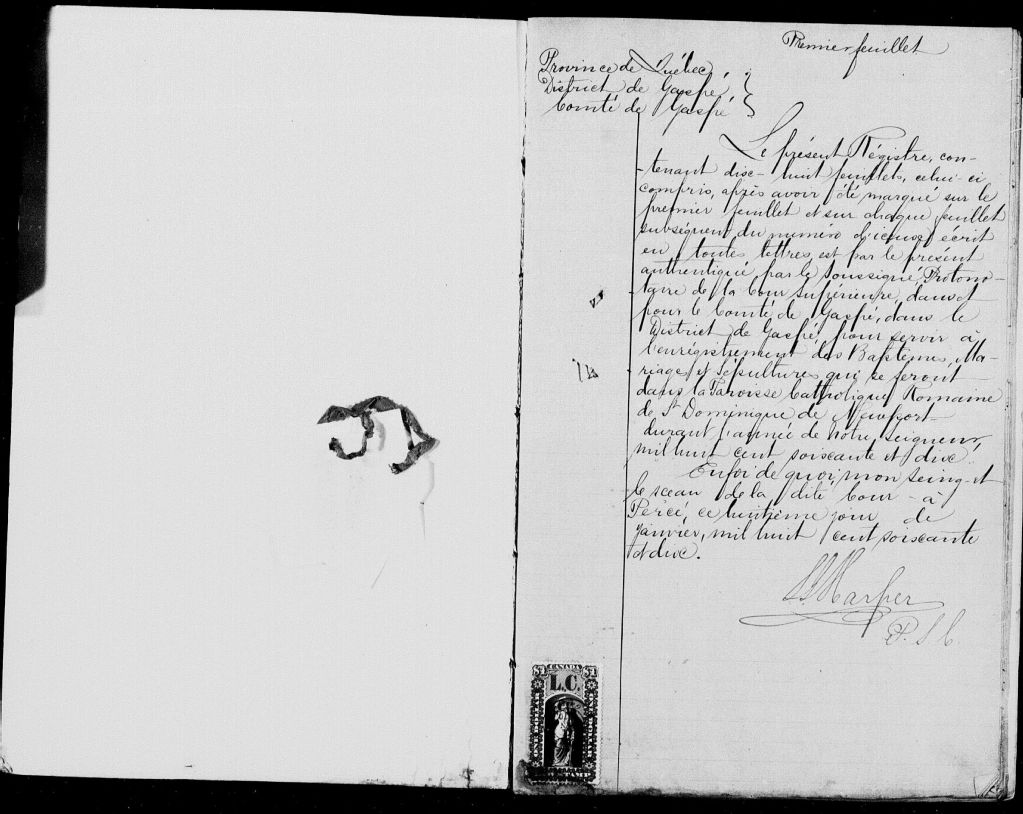 Premier feuillet
Province de Québec,
District de Gaspé,
Comté de Gaspé
Le présent Régistre, con-
-tenant disc-huit feuillets, celui-ci
compris, après avoir été marqué sur le
premier feuillet et sur chaque feuillet
subséquent du numéro d'icelui écrit
en toutes lettres, est par le présent
authentiqué par le soussigné, Protono-
taire de la Cour Supérieure, dans et
pour le Comté de Gaspé, dans le
District de Gaspé, pour servir à
l'enrégistrement des Baptêmes, Ma-
riages et Sépultures qui se feront
dans la Paroisse Catholique Romaine
de St Dominique de Newport
durant l'année de notre Seigneur,
mil huit cent soiscante et disc.
En foi de quoi, mon seing et
le sceau de la dite Cour - à
Percé, ce huitième jour de
Janvier, mil huit cent soiscante
et disc.
Harper
P. S. C
$1 CANADA $1
L.C.